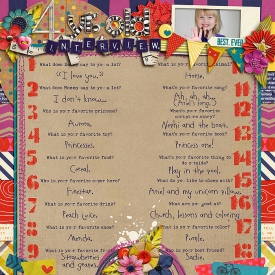 4 year old
INTERVIEW
BEST. EVER.
1
What does Daddy say to you a lot?
"I love you."
What does Mommy say to you a lot?
2
I don't know...
Who is your favorite princess?
3
Aurora,
What is your favorite toy?
4
Princesses,
What is your favorite food?
5
Cereal,
Who is your favorite super hero?
6
What is your favorite drink?
7
Peach juice,
What is your favorite show?
8
What is your favorite fruit?
Strawberries
and grapes,
What is your favorite animal?
Horse,
What's your favorite song?
11
Ah, ah, ah...
(Ariel's song.)
What's your favorite
scripture story?
Nephi and the boat,
What's your favorite book?
Princess one!
What's your favorite thing to
do outside?
Play in the pool,
What do you like to sleep with?
Ariel and my unicorn pillow,
What are you good at?
Church, lessons and coloring
What is your favorite color?
Purple,
Who is your best friend?
Sadie,